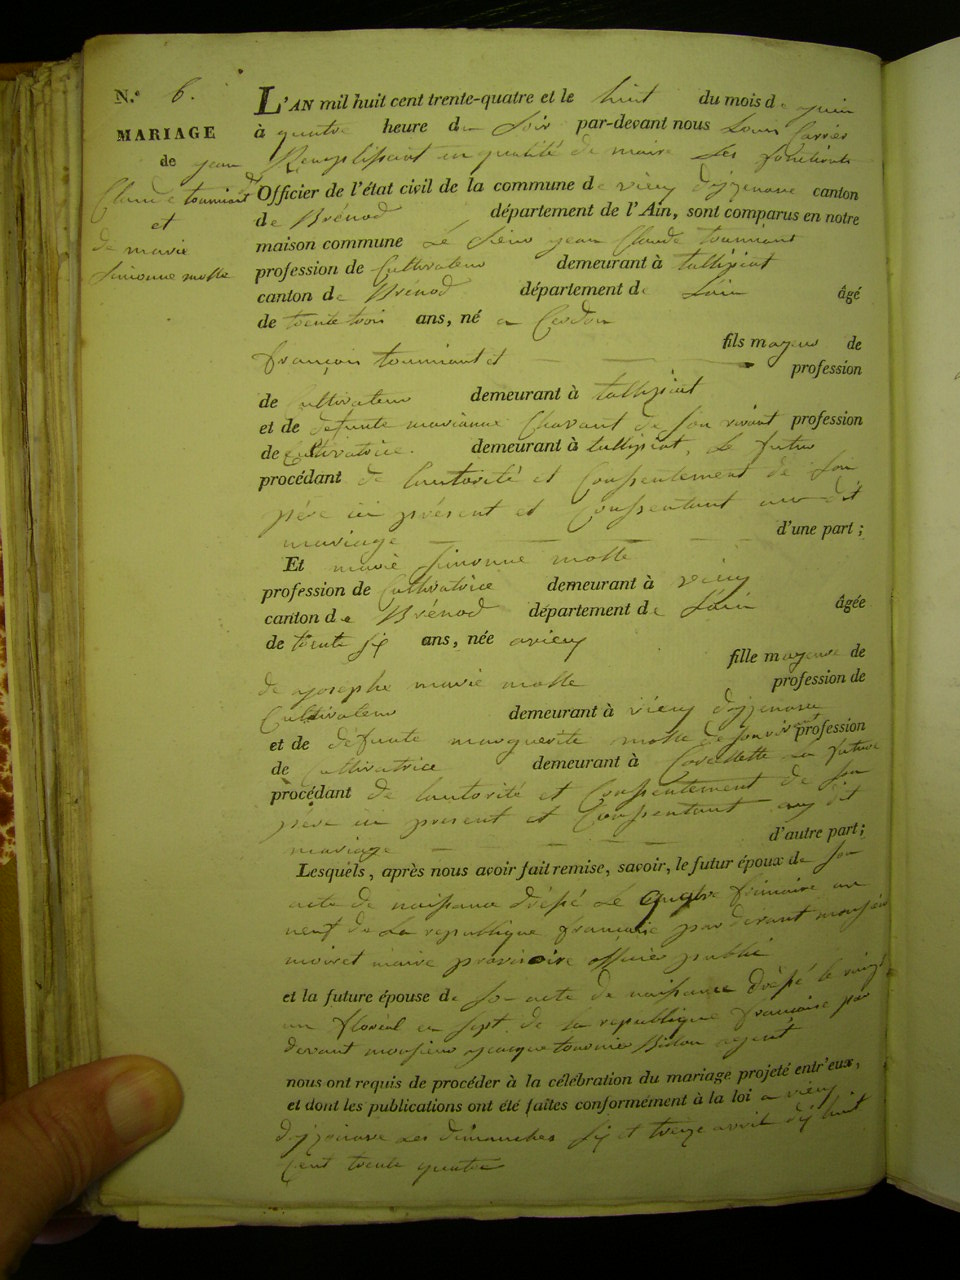 N.º 6.
MARIAGE
de jean
Claude tourniant
et
de marie
simonne motte
L'AN mil huit cent trente-quatre et le huit du mois de juin
à quatre heure du soir par-devant nous Louis Carrier
Remplissant en qualité de maire les fonctions
d'Officier de l'état civil de la commune de vieu d'izenave canton
de Brénod département de l'Ain, sont comparus en notre
maison commune Le sieur jean Claude tourniant
profession de Cultivateur demeurant à tallissiat
canton de Brénod département de Lain âgé
de trente trois ans, né a Cerdon
fils mageur de
françois tourniant et profession
de Cultivateur demeurant à tallissiat
et de defunte marianne Chavant de son vivant profession
de Cultivatrice. demeurant à tallissiat, Le futur
procédant de lautorité et Consentement de son
père ici présent et Consentant au dit
mariage d'une part ;
Et marie simonne motte
profession de Cultivatrice demeurant à vieu
canton de Brénod département de Lain âgée
de trente six ans, née avieu
fille mageure de
de josephe marie motte profession de
Cultivateur demeurant à vieu dizenave
et de defunte marguerite motte de son vivant profession
de Cultivatrice demeurant à Corcellette La future
procédant de lautorité et Consentement de son
père ici present et Consentant au dit
mariage d'autre part ;
Lesquels, après nous avoir fait remise, savoir, le futur époux de son
acte de naissance drèssé Le quatre frimaire an
neuf de La republique francaise par devant monsieur
moiret maire provisoire officier public
et la future épouse de son acte de naissance drèssé le vingt
un floréal en sept de la republique francaise par
devant monsieur jacque tournier Billon agent
nous ont requis de procéder à la célébration du mariage projeté entr'eux,
et dont les publications ont été faites conformément à la loi a vieu
dizenave Les dimanches six et treize avril dix huit
Cent trente quatre